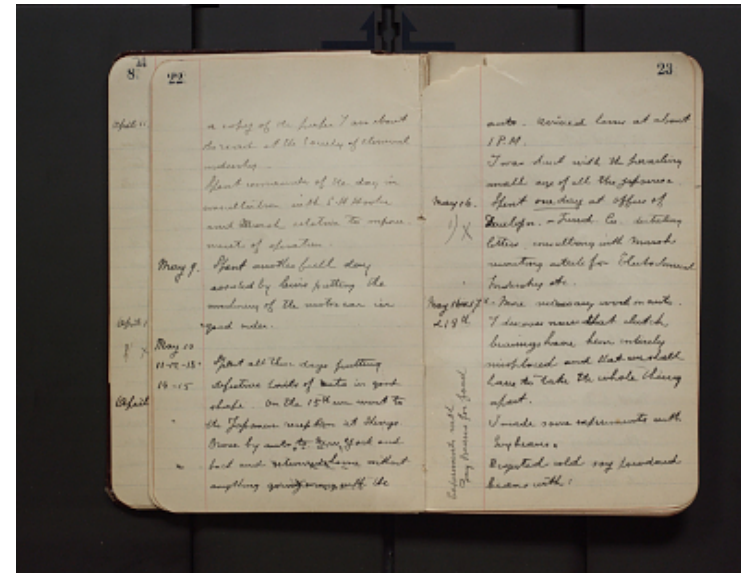 8
22
April
a copy of the paper I am about
to read at the Society of Chemical
Industry.
Spent remainder of the day in
consultation with E. H. Hooker
and Marsh relative to improve-
ments of operation.
May 9. Spent another full day
assisted by Louis putting the
machinery of the motor car in
good order.
April
May 10
11-12-13- Spent all these days putting
14-15 defective parts of auto in good
shape. On the 15th we went to
the Japanese reception at
Drove by auto to New York and
back and returned home without
anything going wrong with the
April
23
auto. arrived home at about
1 P.M.
I was struck with the
small size of all the Japanese
May 16. Spent one day at office of
Develop. & Fund. Co. dictating
letters, consulting with Marsh
rewriting article for Electrochemical
Industry etc.
May 16 & 17th - More necessary work on auto.
& 18th I discover now that clutch
bearings have been entirely
misplaced and that we shall
have to take the whole thing
apart.
I made some experiments with
Soybeans.
Digested cold soy
beans with:
Experiments with
Soy Beans for food